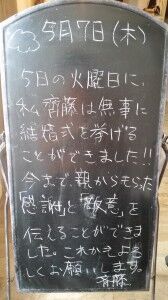 5月7日(木)
5日の火曜日に、
私齊藤は無事に
結婚式を挙げる
ことができました!!
今まで親からもらった
「感謝」と「敬意」を
伝えることができま
した。これからもよろ
しくお願いします。
齊藤